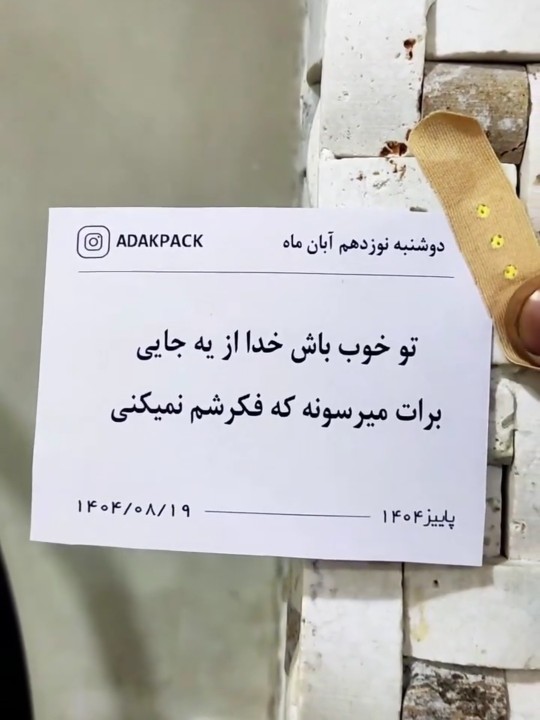 دوشنبه نوزدهم آبان ماه ADAKPACK
تو خوب باش خدا از یه جایی
برات میرسونه که فکرشم نمیکنی
پاییز۱۴۰۴ ۱۴۰۴/۰۸/۱۹